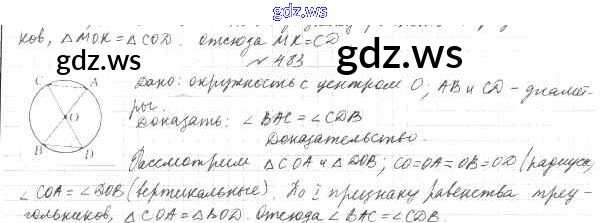 gdz.ws
ков, △MOK = △COD. отсюда MK=CD
№ 483
C A
O
B D
Дано: окружность с центром O; AB и CD - диамет-
ры.
Доказать: ∠BAC = ∠CDB
Доказательство.
Рассмотрим △COA и △DOB; CO=OA=OB=OD (радиусы)
∠COA = ∠DOB (вертикальные). По I признаку равенства тре-
гольников, △COA = △BOD. Отсюда ∠BAC = ∠CDB.
gdz.ws
gdz.ws
gdz.ws